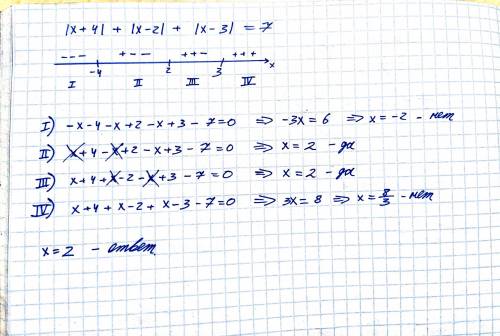 |x+4| + |x-2| + |x-3| = 7
- - - + - - + + - + + +
-4 2 3 x
I II III IV
I) -x-4-x+2-x+3-7=0 ⇒ -3x=6 ⇒ x=-2 - нет
II) x+4-x+2-x+3-7=0 ⇒ x=2 - да
III) x+4+x-2-x+3-7=0 ⇒ x=2 - да
IV) x+4+x-2+x-3-7=0 ⇒ 3x=8 ⇒ x=8/3 - нет
x=2 - ответ.